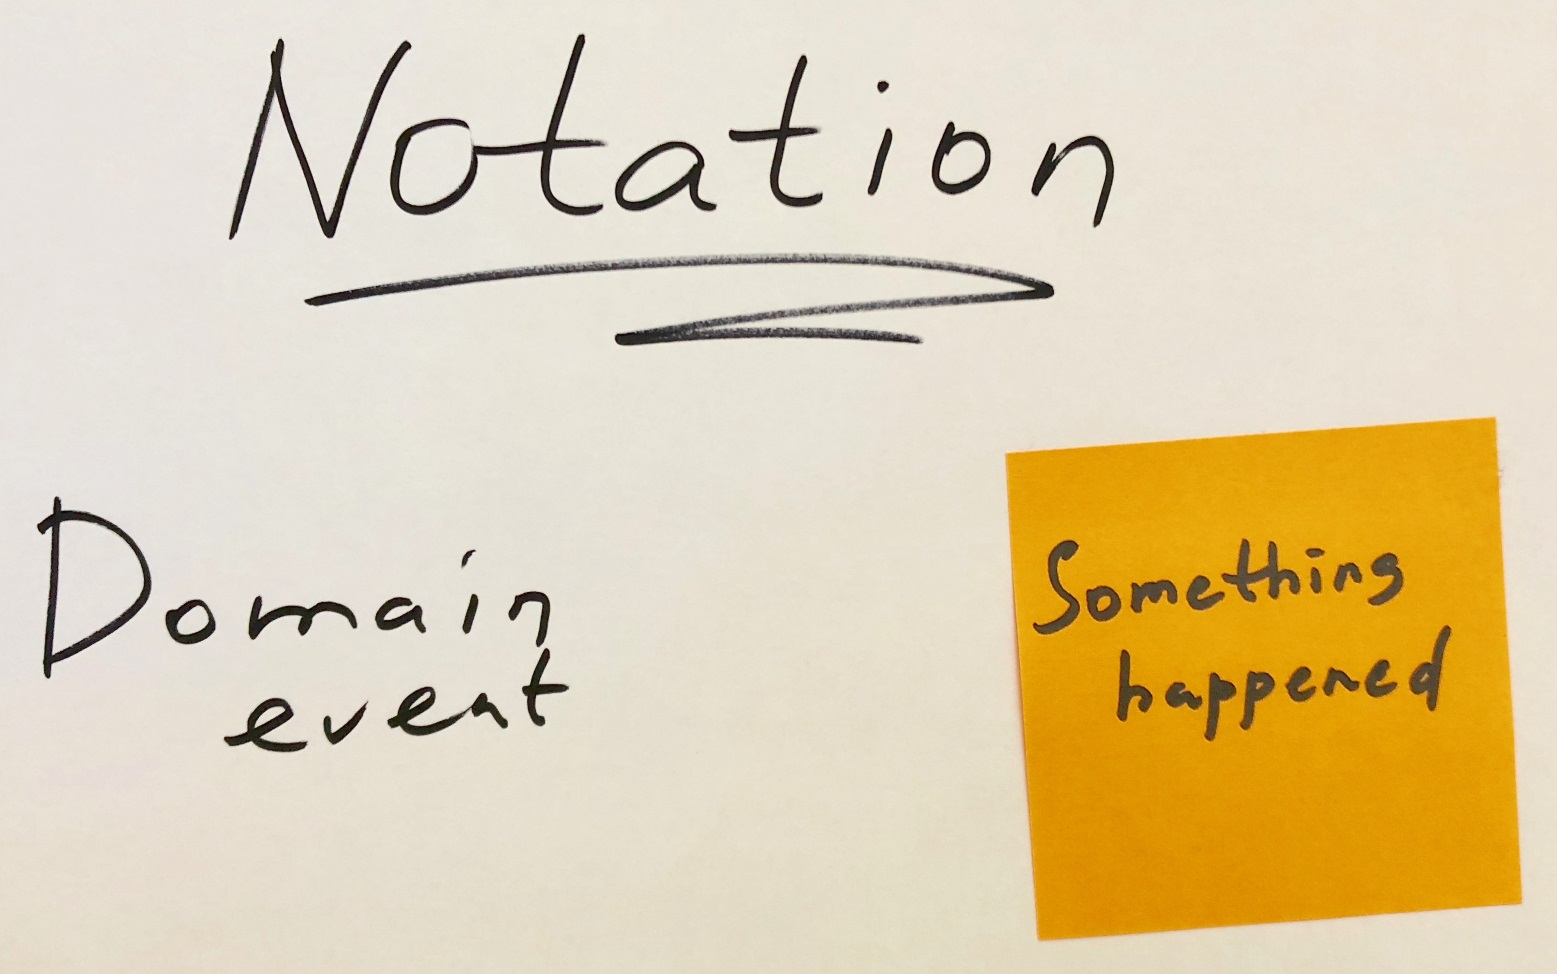 Notation
Domain
event
Something
happened